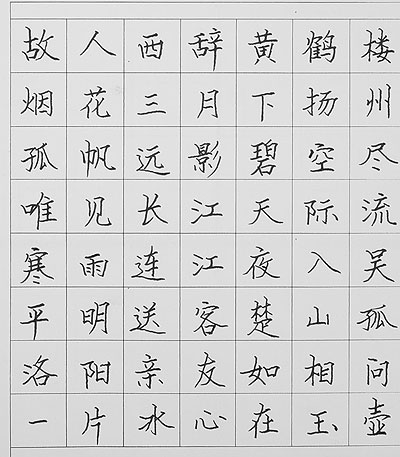 故人西辞黄鹤楼
烟花三月下扬州
孤帆远影碧空尽
唯见长江天际流
寒雨连江夜入吴
平明送客楚山孤
洛阳亲友如相问
一片水心在玉壶